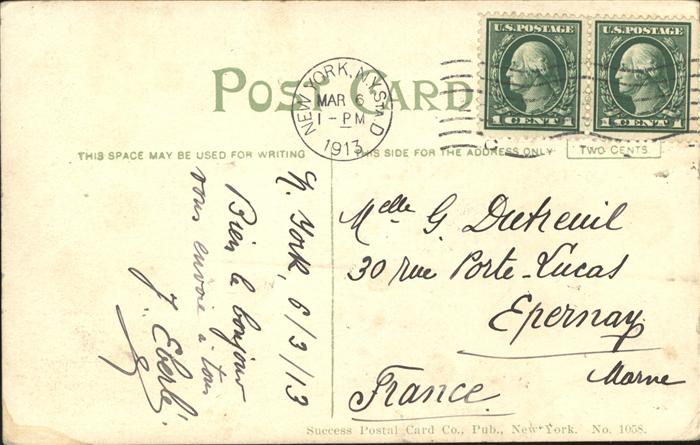 POST CARD
NEW YORK, N.Y. STA. D
MAR 6
1 - PM
1913
U.S. POSTAGE
1 CENT 1
U.S. POSTAGE
1 CENT 1
THIS SPACE MAY BE USED FOR WRITING
THIS SIDE FOR THE ADDRESS ONLY
TWO CENTS
N. York, 6/3/13
Bien le bonjour
vous envoie à tous
J. Eberlé
Melle G. Dutreuil
30 rue Porte-Lucas
Epernay
Marne
France
Success Postal Card Co., Pub., New York. No. 1058.